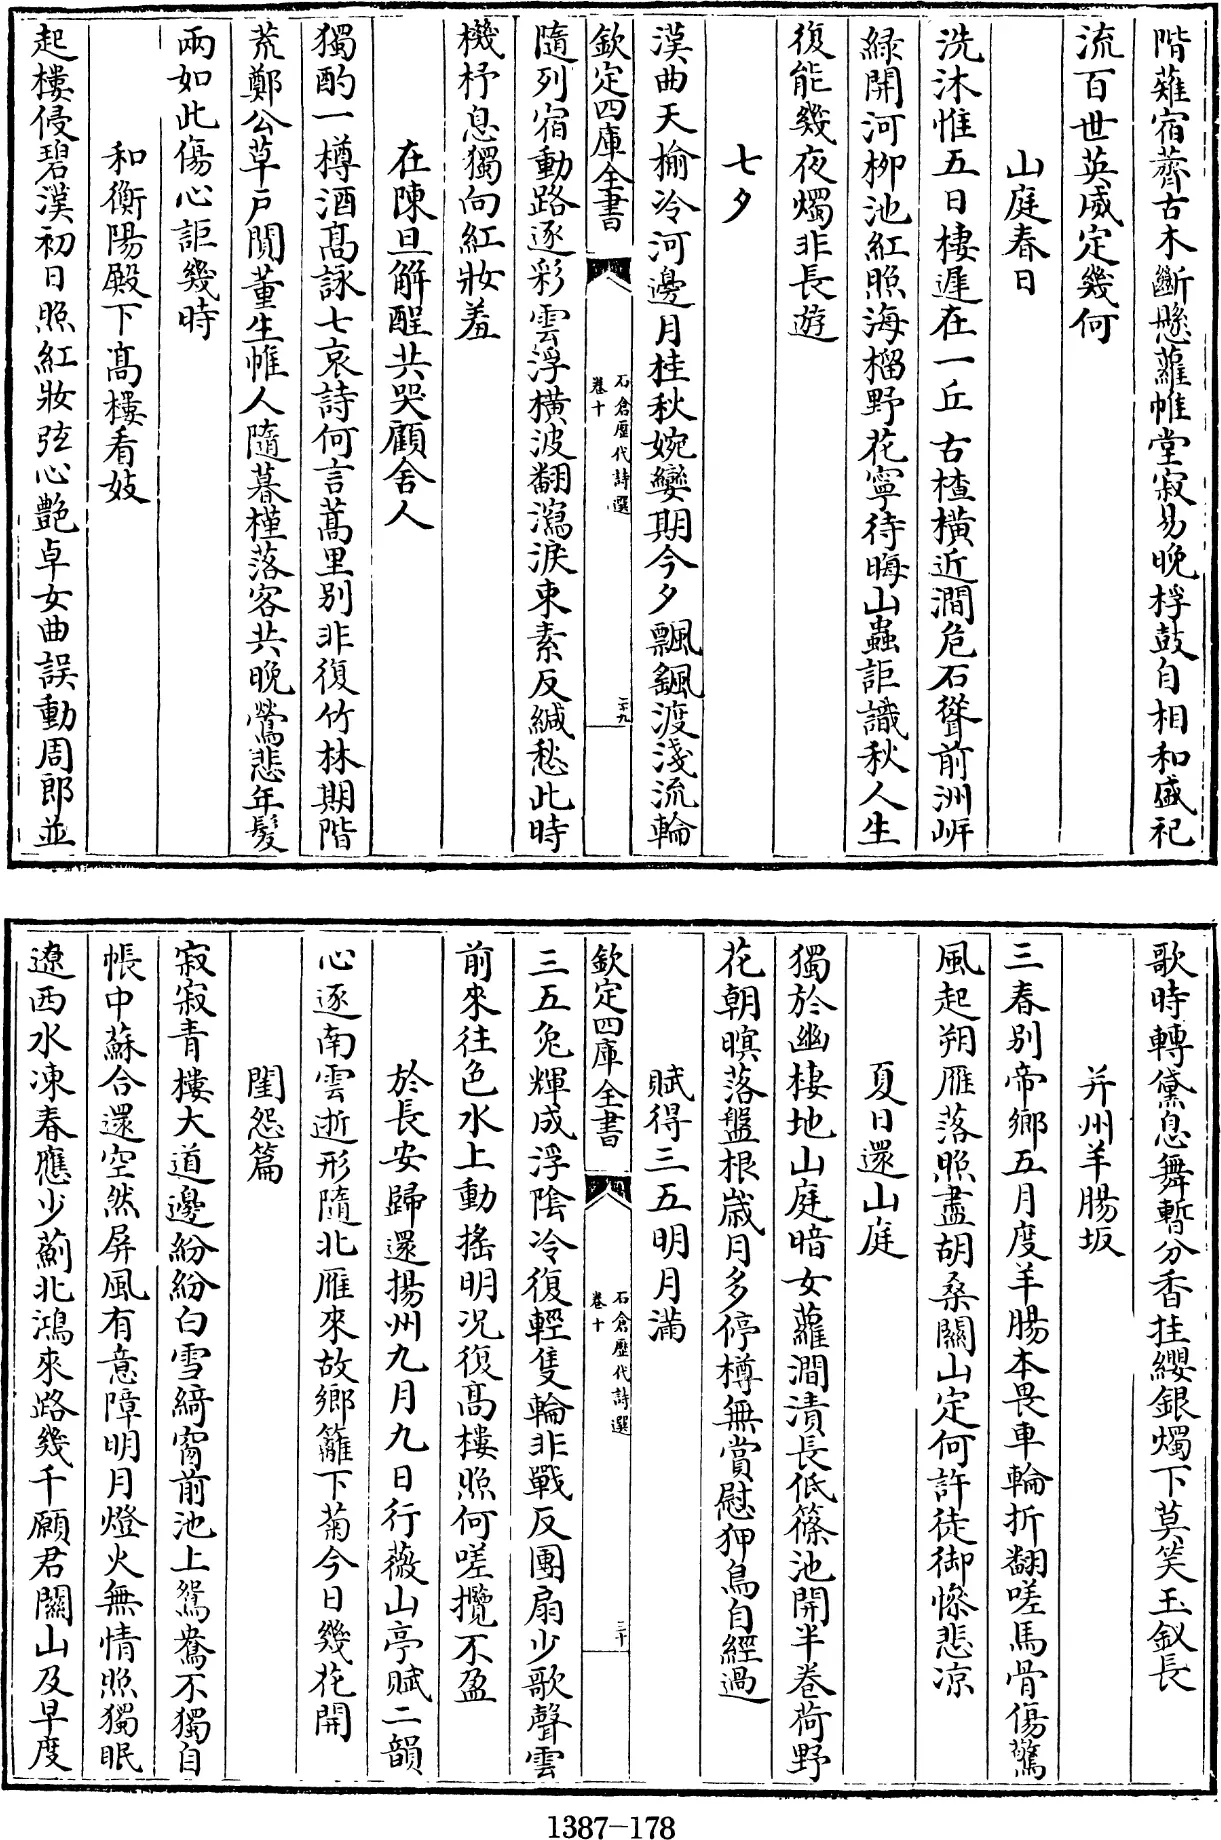 階薙宿薺古木斷懸蘿帷堂寂易晚桴鼓自相和盛祀
流百世英威定幾何
山庭春日
洗沐惟五日棲遲在一丘古楂橫近澗危石聳前洲岍
緑開河柳池紅照海榴野花寧待晦山蟲詎識秋人生
復能幾夜燭非長遊
七夕
漢曲天榆冷河邊月桂秋婉孌期今夕飄颻渡淺流輪
欽定四庫全書
石倉歷代詩選
卷十
二十九
隨列宿動路逐彩雲浮橫波翻瀉淚束素反緘愁此時
機杼息獨向紅妝羞
在陳旦解酲共哭顧舍人
獨酌一樽酒髙詠七哀詩何言蒿里别非復竹林期階
荒鄭公草戸閴董生帷人隨暮槿落客共晚鶯悲年髪
兩如此傷心詎幾時
和衡陽殿下髙樓看妓
起樓侵碧漢初日照紅妝弦心艷卓女曲誤動周郎並
歌時轉黛息舞暫分香挂纓銀燭下莫笑玉釵長
并州羊腸坂
三春别帝鄉五月度羊腸本畏車輪折翻嗟馬骨傷驚
風起朔雁落照盡胡桑關山定何許徒御慘悲凉
夏日還山庭
獨於幽棲地山庭暗女蘿澗漬長低篠池開半卷荷野
花朝暝落盤根歲月多停樽無賞慰狎鳥自經過
賦得三五明月滿
欽定四庫全書
石倉歷代詩選
卷十
三十
三五兔輝成浮陰冷復輕隻輪非戰反團扇少歌聲雲
前來往色水上動搖明况復髙樓照何嗟攬不盈
於長安歸還揚州九月九日行薇山亭賦二韻
心逐南雲逝形隨北雁來故鄉籬下菊今日幾花開
閨怨篇
寂寂青樓大道邊紛紛白雪綺窗前池上鴛鴦不獨自
帳中蘇合還空然屏風有意障明月燈火無情照獨眠
遼西水凍春應少薊北鴻來路幾千願君關山及早度
1387-178